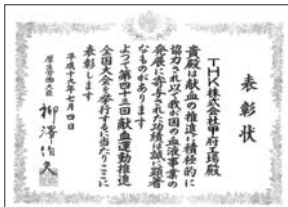 表彰状
THK株式会社甲府工場殿
貴殿は献血の推進に積極的に
協力され以て我が国の血液事業の
発展に寄与された功績は誠に顕著
なものがあります
よって第四十三回献血運動推進
全国大会を挙行するに当たりここに
表彰します
平成十九年七月四日
厚生労働大臣
柳澤伯夫